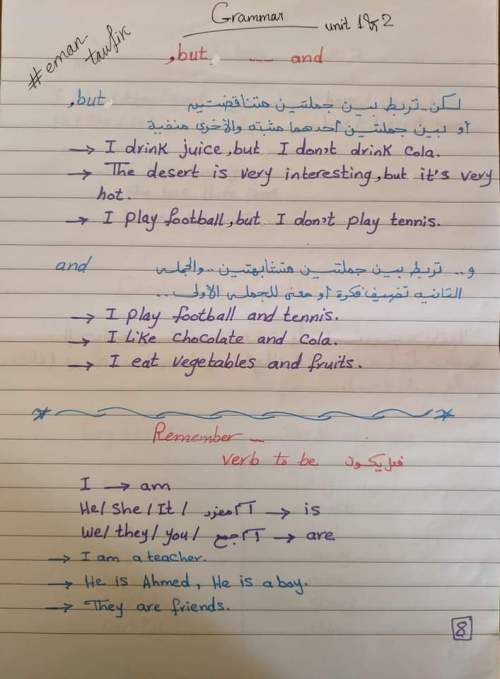 Grammar unit 1&2
#eman taufik
,but --- and
,but لكن.. تربط بين جملتين متناقضتين
أو بين جملتين أحدهما مثبته والأخرى منفية
→ I drink juice, but I don't drink cola.
→ The desert is very interesting, but it's very
hot.
→ I play football, but I don't play tennis.
and و.. تربط بين جملتين متشابهتين.. والجمله
الثانيه تضيف فكرة أو معنى للجمله الأولى...
→ I play football and tennis.
→ I like chocolate and cola.
→ I eat vegetables and fruits.
Remember --
verb to be فعل يكون
I → am
He/ She / It / مفرد → is
We/ they / you / جمع → are
→ I am a teacher.
→ He is Ahmed, He is a boy.
→ They are friends.
8